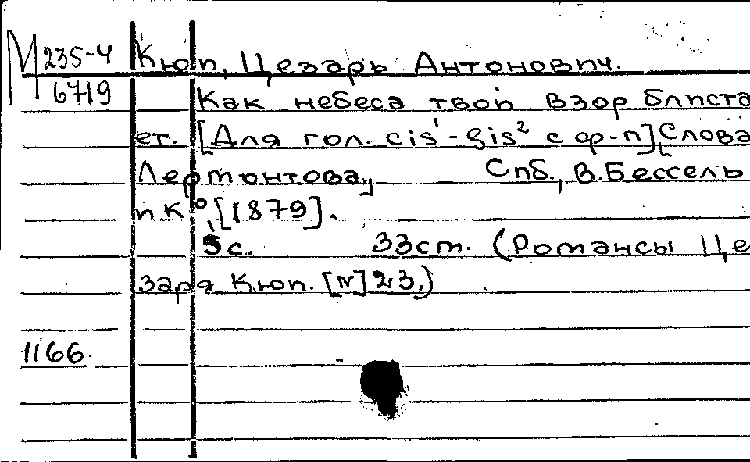 М 235-4
6719
Кюи, Цезарь Антонович.
Как небеса твой взор блиста
ет. [Для гол. cis¹-gis² с ф-п] Слова
Лермонтова,, Спб., В. Бессель
и К⁰, [1879].
5с. 33ст. (Романсы Це
заря Кюи. [№] 23.)
1166.